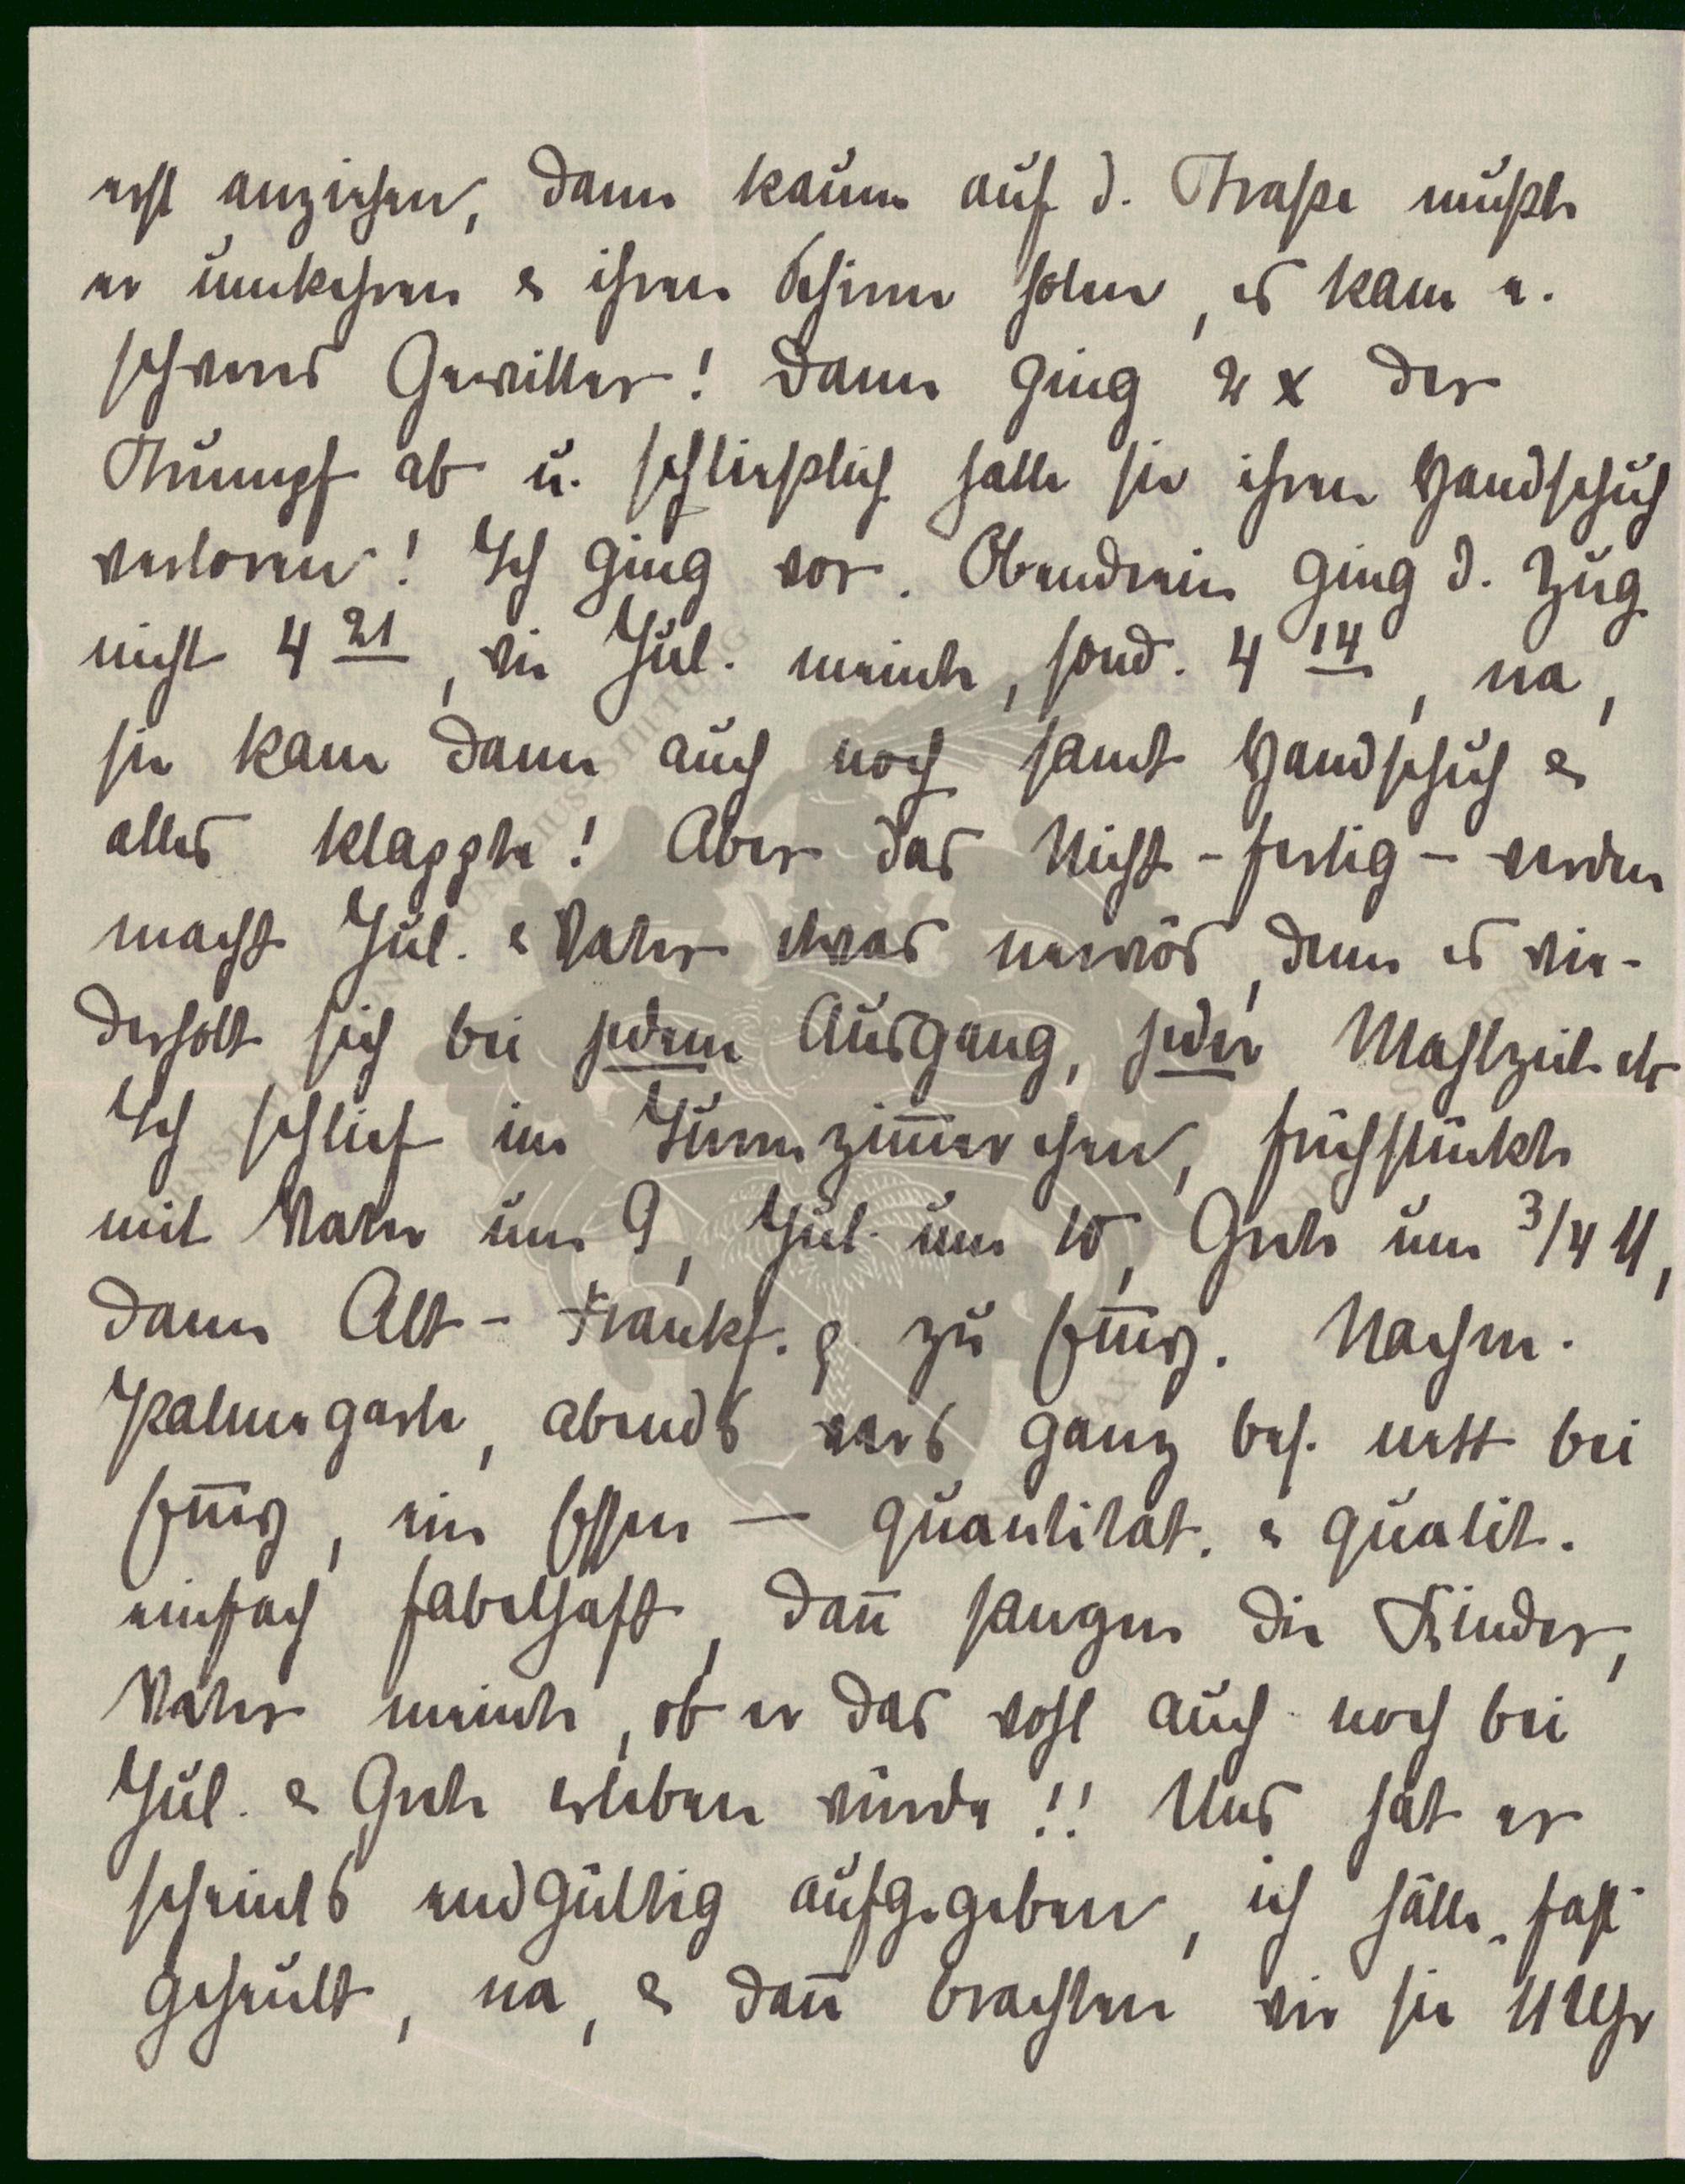 erst anziehen, dann kaum auf d. Straße mußte
er umkehren & ihren Schirm holen, es kam e.
schweres Gewitter! Dann ging 2 x der
Strumpf ab u. schließlich hatte sie ihren Handschuh
verloren! Ich ging vor. Obendrein ging d. Zug
nicht 4 21, wie Jul. meinte, sond. 4 14, na,
sie kam dann auch noch samt Handschuh &
alles klappte! Aber das Nicht-fertig-werden
macht Jul. & Vater etwas nervös, denn es wie-
derholt sich bei jedem Ausgang, jeder Mahlzeit etc
Ich schlief im Turmzim̅erchen, frühstückte
mit Vater um 9, Jul. um 10, Grete um 3/4 11,
dann Alt-Frankf. & zu. Nachm.
Palmengarte, abends wars ganz bes. nett bei
, ein Essen — quantitat. & qualit.
einfach fabelhaft, dan̅ sangen die Kinder,
Vater meinte, ob er das wohl auch noch bei
Jul. & Grete erleben würde!! Uns hat er
scheints endgültig aufgegeben, ich hätte fast
geheult, na, & dan̅ brachten wir sie 11 Uhr
MAX